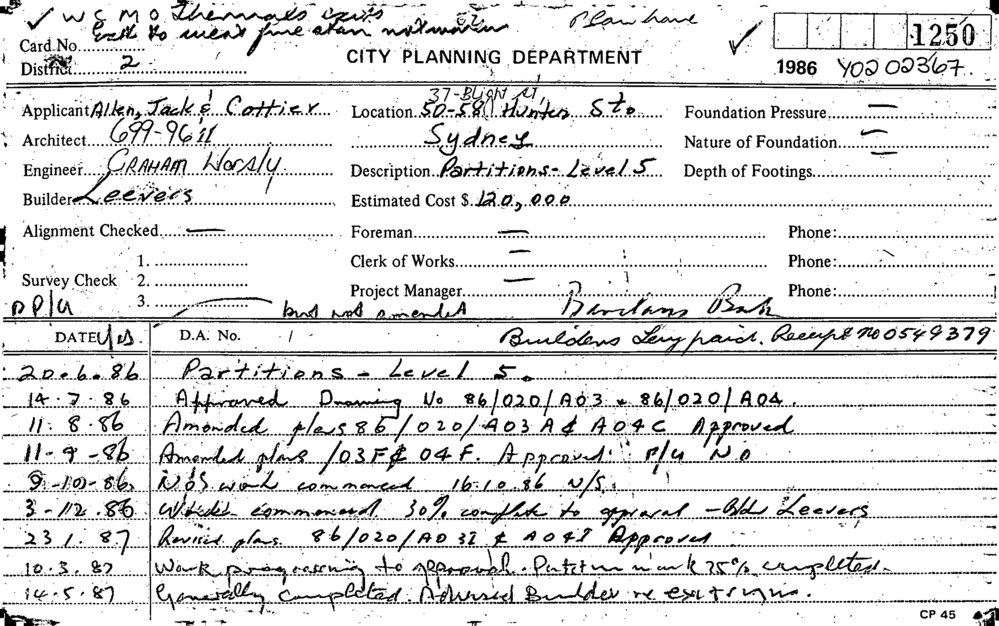 ✓ W S M O Thermals
Plan have
Card No.
1250
District 2
CITY PLANNING DEPARTMENT
✓
1986 Y02 02367
37- Bligh St,
Applicant Allen, Jack & Cottier
Location 50-58 Hunter Sts
Foundation Pressure —
Architect 699-9611
Sydney
Nature of Foundation —
Engineer GRAHAM Worsly
Description Partitions - Level 5
Depth of Footings
Builder Leevers
Estimated Cost $ 120,000
Alignment Checked —
Foreman —
Phone:
1.
Clerk of Works —
Phone:
Survey Check 2.
Project Manager —
Phone:
3.
P/U
but not amended
Barclays Bank
DATE
D.A. No. 1
Builders Levy paid. Receipt No 0549379
20.6.86 Partitions - Level 5.
14.7.86 Approved Drawing No 86/020/A03 & 86/020/A04.
11.8.86 Amended plans 86/020/A03A & A04C Approved
11-9-86 Amended plans /03F & 04F. Approved P/U NO
9-10-86 work commenced 16.10.86 N/S.
3-12.86 commenced 30% complete to approval - Bldr Leevers
23 1.87 Revised plans. 86/020/A03I & A04I Approved
10.3.87 Work progressing to approval. 75% completed.
14.5.87 Generally completed. Advised Builder re exit signs.
CP 45